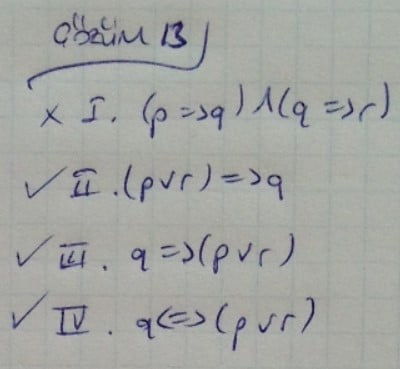 çözüm 13
x I. (p => q) ∧ (q => r)
✓ II. (p ∨ r) => q
✓ III. q => (p ∨ r)
✓ IV. q <=> (p ∨ r)